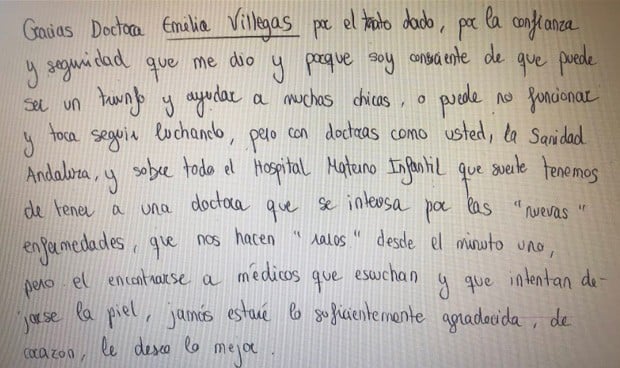 Gracias Doctora Emilia Villegas por el trato dado, por la confianza
y seguridad que me dio y porque soy consciente de que puede
ser un triunfo y ayudar a muchas chicas, o puede no funcionar
y toca seguir luchando, pero con doctoras como usted, la Sanidad
Andaluza, y sobre todo el Hospital Materno Infantil que suerte tenemos
de tener a una doctora que se interesa por las "nuevas"
enfermedades, que nos hacen "raros" desde el minuto uno,
pero el encontrarse a médicos que escuchan y que intentan de-
jarse la piel, jamás estaré lo suficientemente agradecida, de
corazón, le deseo lo mejor.